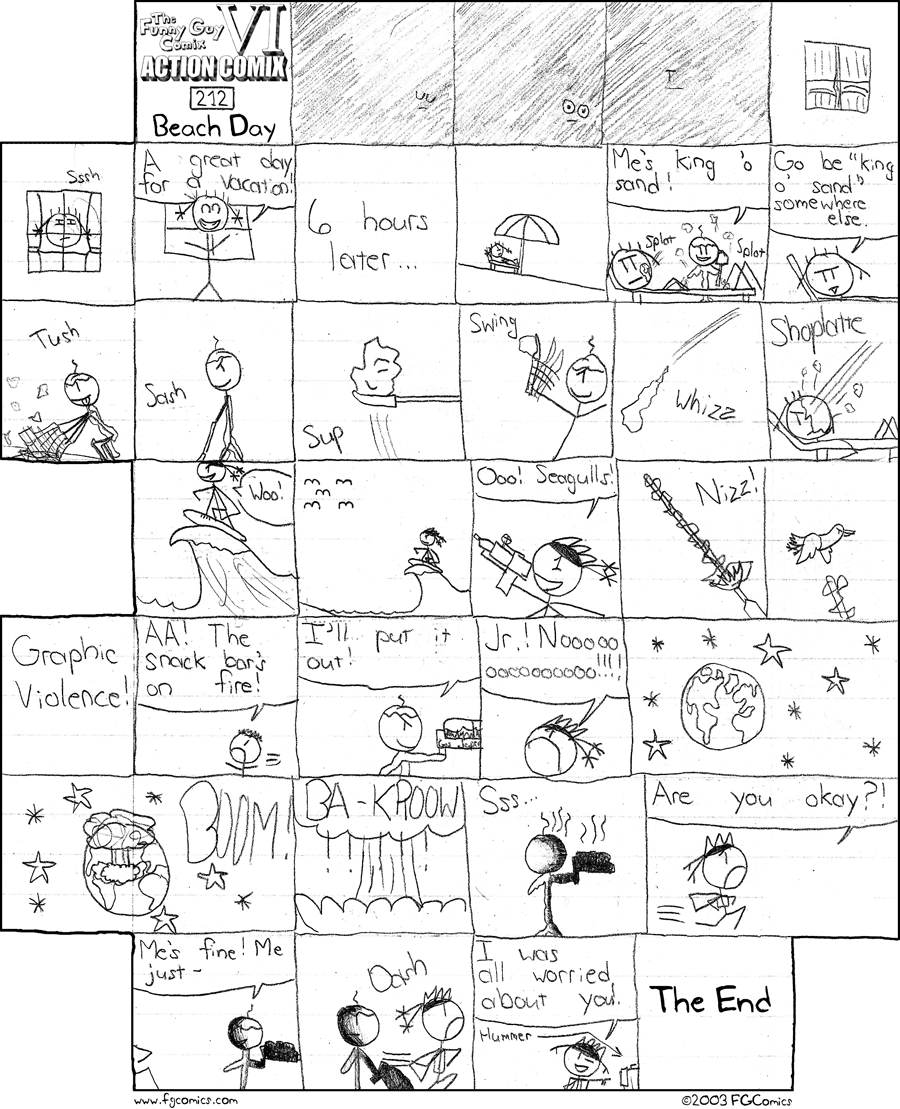 The
Funny Guy
Comix
VI
ACTION COMIX
212
Beach Day
Sssh
A great day
for a vacation!
6 hours
later...
Me's king 'o
sand!
Splat
Splat
Go be "king
o' sand"
somewhere
else.
Tush
Sash
Sup
Swing
Whizz
Shaplatte
Woo!
Ooo! Seagulls!
Nizz!
Graphic
Violence!
AA! The
snack bar's
on fire!
I'll put it
out!
Jr.! Nooooo
oooooooooo!!!!
BOOM!
BA-KROOW!
Sss...
Are you okay?!
Me's fine! Me
just-
Dash
I was
all worried
about you!
Hummer
The End
www.fgcomics.com
©2003 FGComics